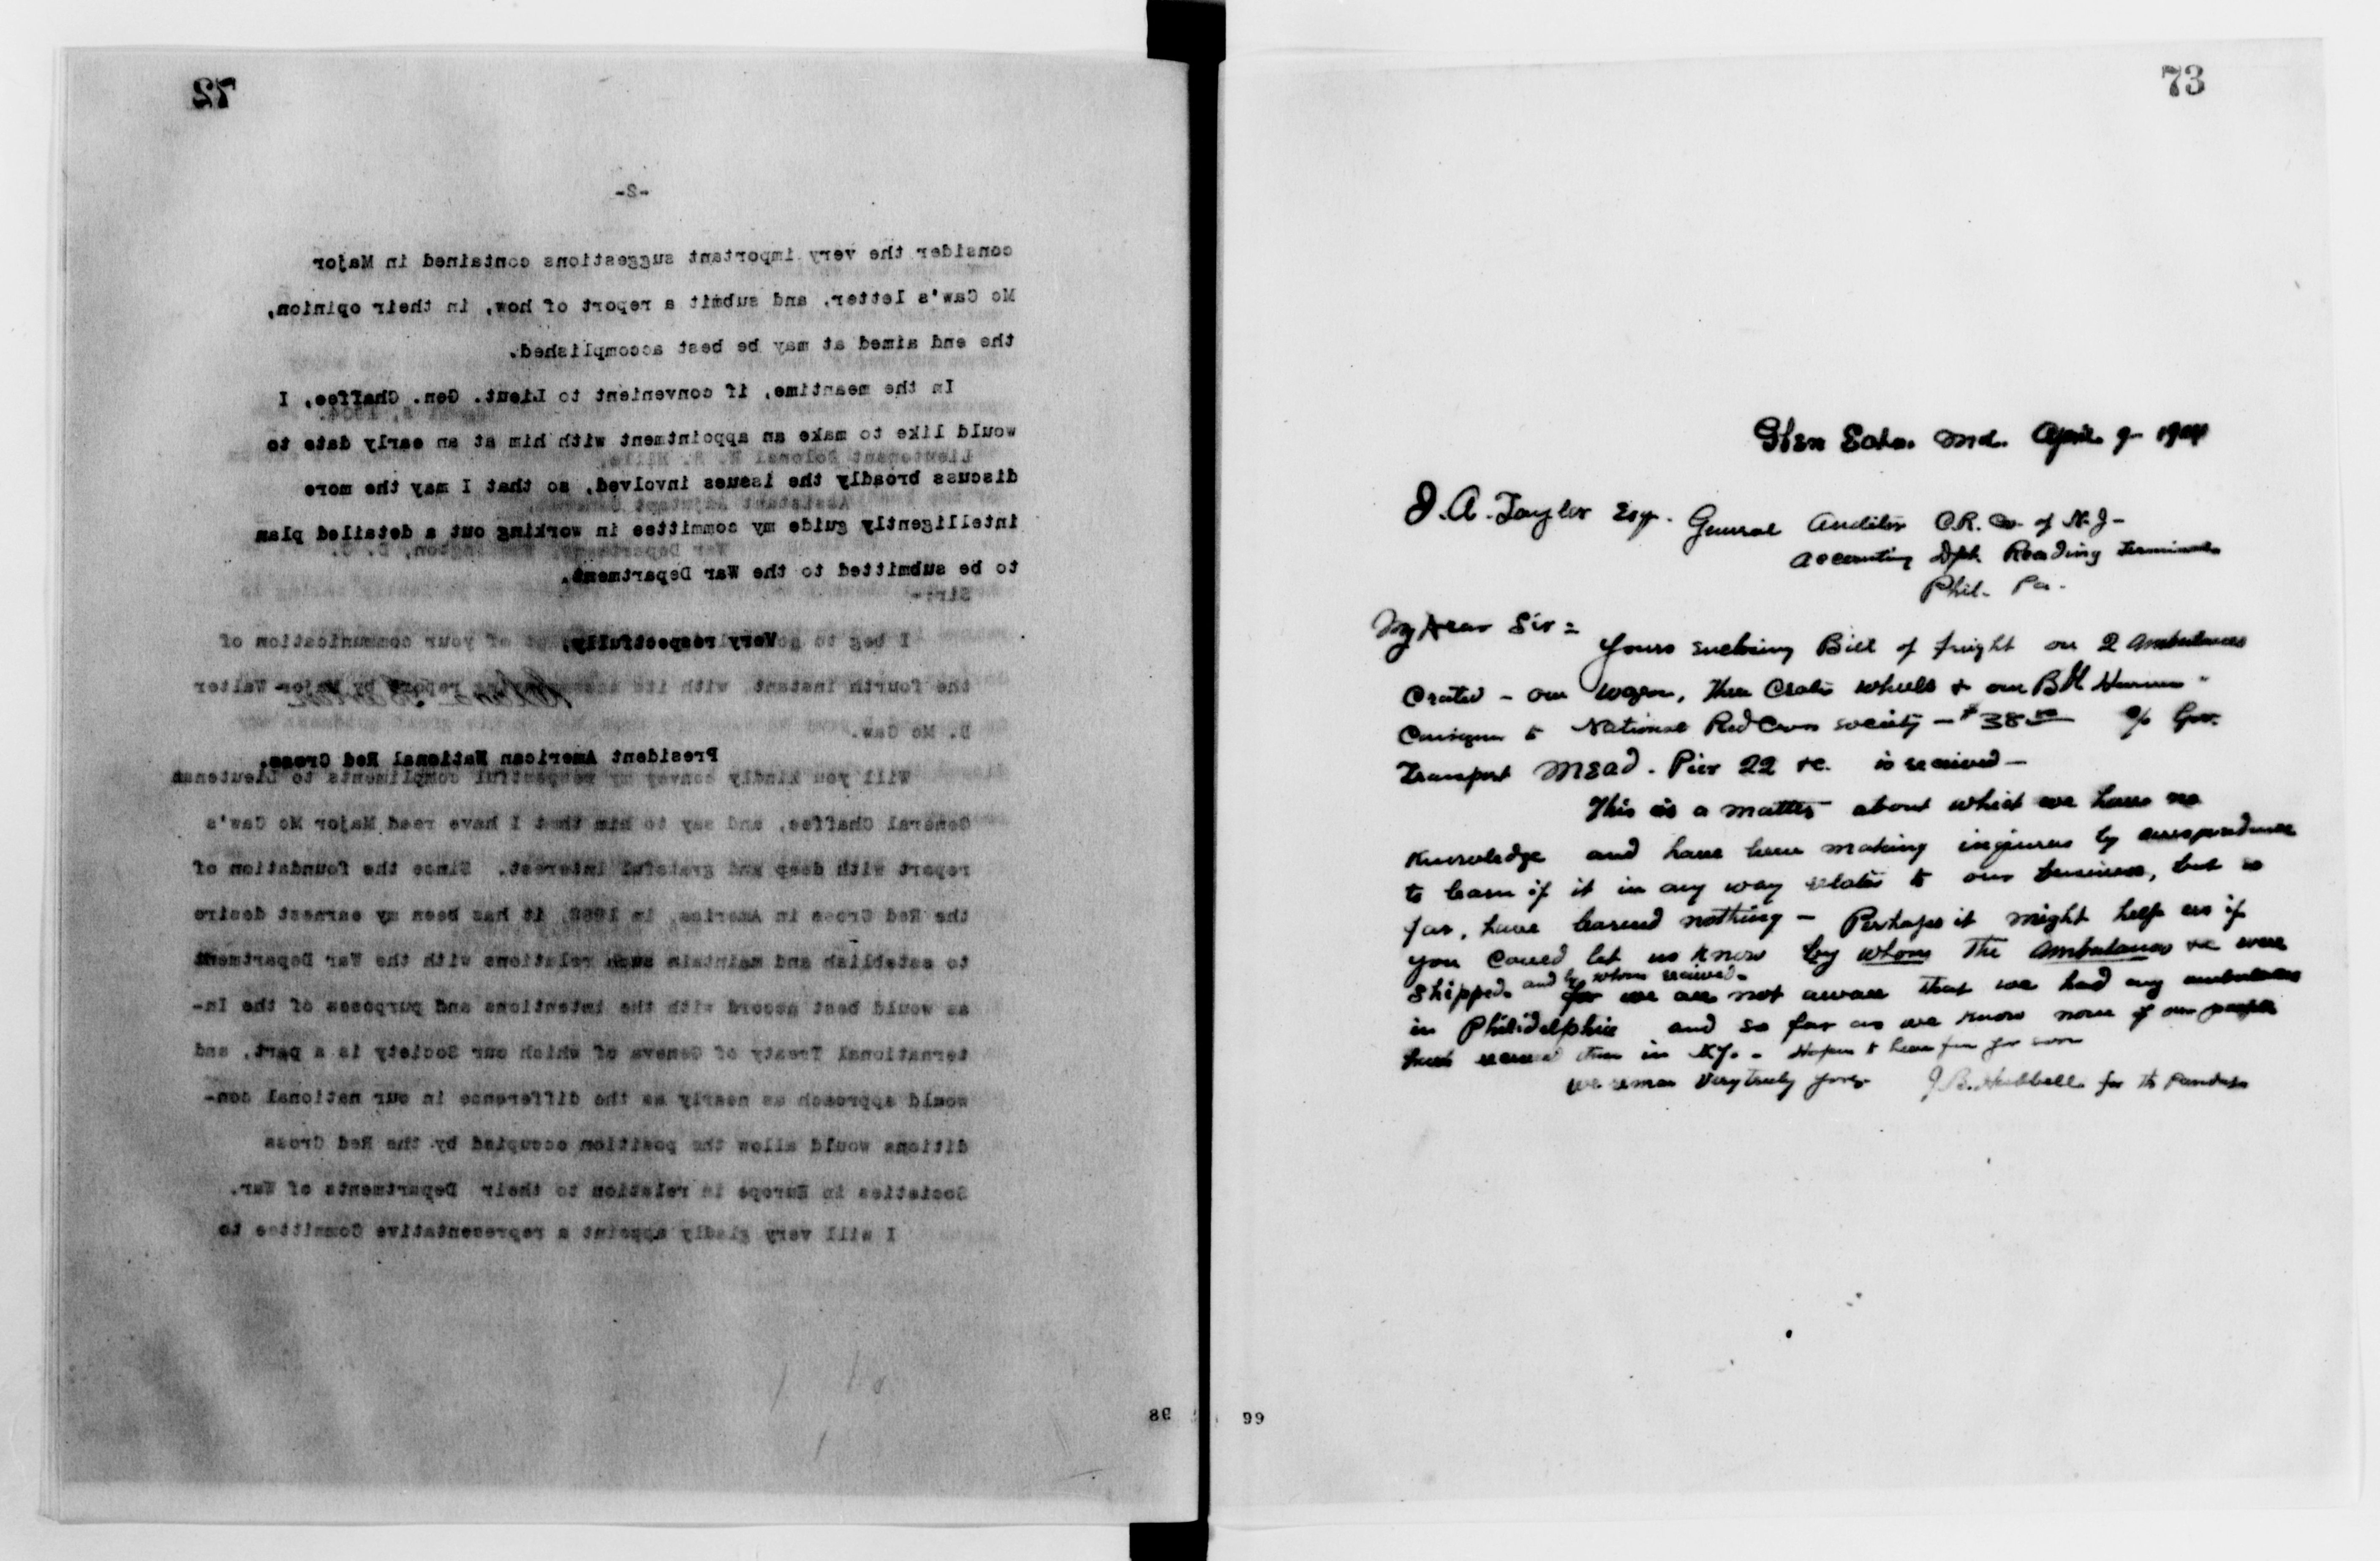 72
-2-
consider the very important suggestions contained in Major
Mc Caw's letter, and submit a report of how, in their opinion,
the end aimed at may be best accomplished.
In the meantime, if convenient to Lieut. Gen. Chaffee, I
would like to make an appointment with him at an early date to
discuss broadly the issues involved, so that I may the more
intelligently guide my committee in working out a detailed plan
to be submitted to the War Department.
Very respectfully,
President American National Red Cross.
1904.
Lieutenant Colonel
Assistant Adjutant General,
War Department, Washington, D. C.
Sir:-
I beg to of your communication of
the fourth instant, with its report by Major Walter
D. Mc Caw.
Will you kindly convey my respectful compliments to Lieutenant
General Chaffee, and say to him that I have read Major Mc Caw's
report with deep and grateful interest. Since the foundation of
the Red Cross in America, in it has been my earnest desire
to establish and maintain such relations with the War Department
as would best accord with the intentions and purposes of the In-
ternational Treaty of Geneva of which our Society is a part, and
would approach as nearly as the difference in our national con-
ditions would allow the position occupied by the Red Cross
Societies in Europe in relation to their Departments of War.
I will very gladly appoint a representative Committee to
98
73
Glen Echo. Md. April 9- 1904
J. A. Taylor Esq. General Auditor C.R. Co. of N.J-
Accounting Dpt. Reading Terminal
Phil. Pa.
My Dear Sir =
Yours enclosing Bill of freight on 2 Ambulances
Crated - one wagon, three Crates wheels & one Bdl Harness "
Consigned to National Red Cross society - $38 Gov.
Transport Mead. Pier 22 &c. is received -
This is a matter about which we have no
Knowledge and have been making inquiries by correspondence
to learn if it in any way relates to our business, but so
far, have learned nothing - Perhaps it might help us if
you could let us know by whom the ambulances &c were
Shipped. and by whom received.
for we are not aware that we had any ambulances
in Philidelphia and so far as we know none of our people
have received them in N.Y. - Hoping to hear from you soon
we remain Very truly yours J. B. Hubbell for the President
99